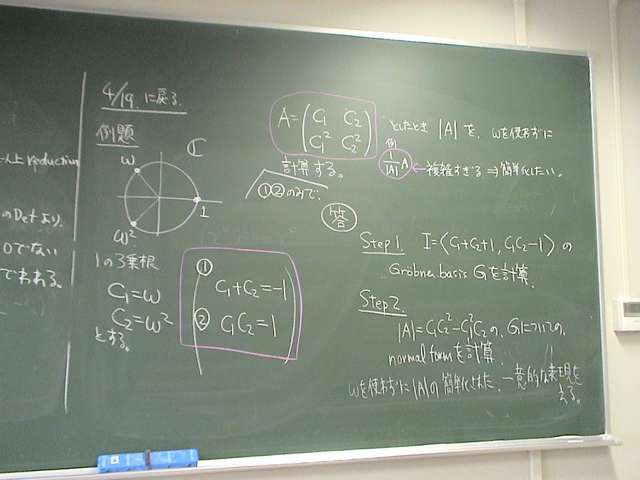 上 reduction
のDetより
0でない
でわれる。
4/19. に戻る.
例題
ω
ℂ
1
ω²
1の3乗根
C₁=ω
C₂=ω²
とする。
① C₁+C₂=-1
② C₁C₂=1
A=(C₁ C₂
C₁² C₂²)
としたとき |A| を、ωを使わずに
計算する。
①②のみで、
例
1/|A| A ← 複雑すぎる ⇒ 簡単化したい。
答
Step 1. I=⟨C₁+C₂+1, C₁C₂-1⟩ の
Gröbner basis Gを計算.
Step 2.
|A|=C₁C₂²-C₁²C₂の、Gについての、
normal formを計算.
ωを使わずに |A|の簡単化された、一意的な表現を